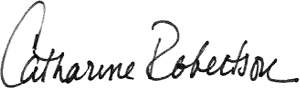 Catharine Robertson